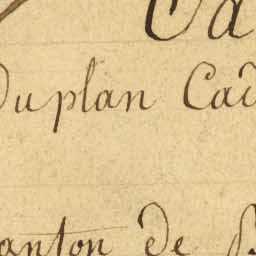 du plan Cad
anton de